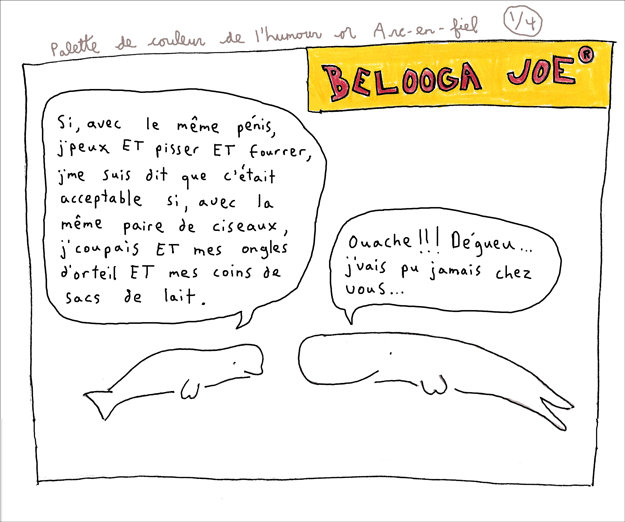 Palette de couleur de l'humour or Arc-en-fiel 1/4
BELOOGA JOE®
Si, avec le même pénis,
j'peux ET pisser ET fourrer,
j'me suis dit que c'était
acceptable si, avec la
même paire de ciseaux,
j'coupais ET mes ongles
d'orteil ET mes coins de
sacs de lait.
Ouache!!! Dégueu...
j'vais pu jamais chez
vous...